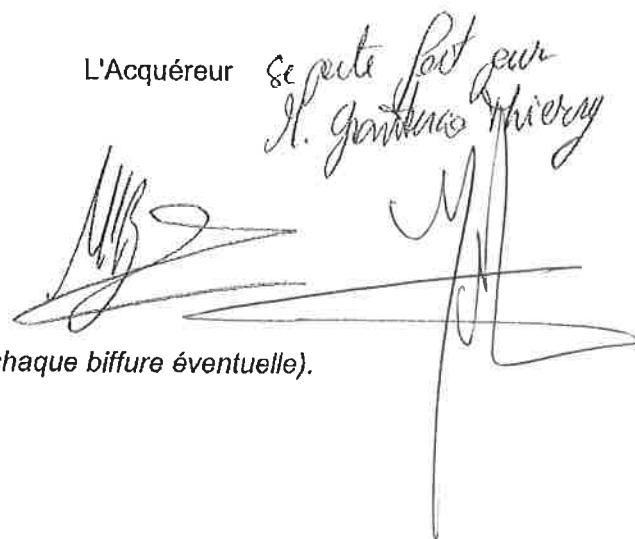 L'Acquéreur Se porte fort pour
M. Thierry
chaque biffure éventuelle).